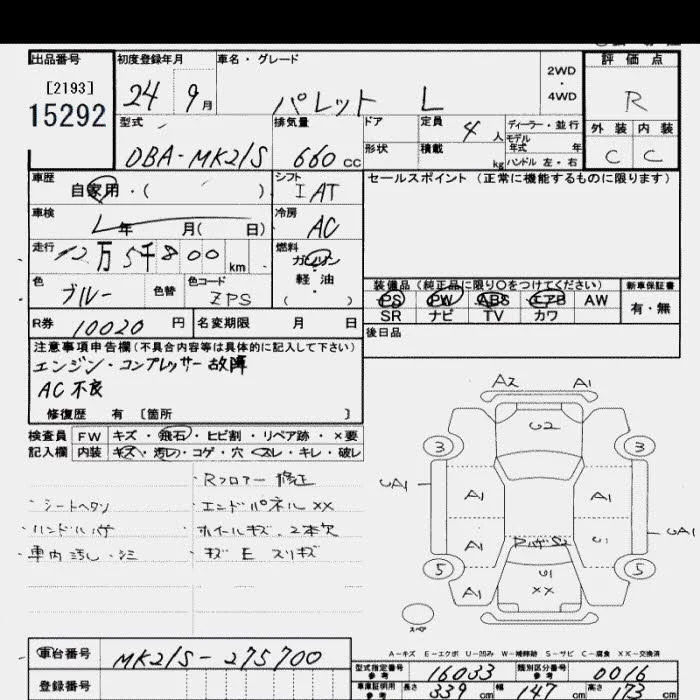 出品番号 初度登録年月 車名・グレード 評価点
[2193]
15292
24 9月 パレット L 2WD・4WD R
型式 排気量 ドア 定員 4人 ディーラー・並行 外装 内装
モデル年式 年
DBA-MK21S 660cc 形状 積載 kg ハンドル 左・右 C C
車歴 シフト セールスポイント (正常に機能するものに限ります)
自家用・( ) IAT
車検 冷房
年 月( 日) AC
走行 燃料
12万5千800km ガソリン
軽油
( )
色 色替 色コード
ブルー ZPS
装備品(純正品に限り○をつけてください) 新車保証書
PS PW ABS エアB AW 有・無
SR ナビ TV カワ
R券 10020円 名変期限 月 日
後日品
注意事項申告欄(不具合内容等は具体的に記入して下さい)
エンジン・コンプレッサー故障
AC不良
修復歴 有 〔箇所 〕
検査員 FW キズ・飛石・ヒビ割・リペア跡・×要
記入欄 内装 キズ・汚レ・コゲ・穴・スレ・キレ・破レ
・Rフロアー修正
・シートヘタリ ・エンドパネルXX
・ハンドルハゲ ・ホイールキズ、2本欠
・車内汚レ・シミ ・キズ E スリキズ
A2 A1
U2
3 3
UA1 A1 A1 UA1
A1
5 5
A1 XX
スペア
A-キズ E-エクボ U-凹み W-補修跡 S-サビ C-腐食 XX-交換済
車台番号 MK21S-275700
型式指定番号 参考 16033 類別区分番号 参考 0016
登録番号
車庫証明用 参考 長さ 339cm 幅 147cm 高さ 173cm